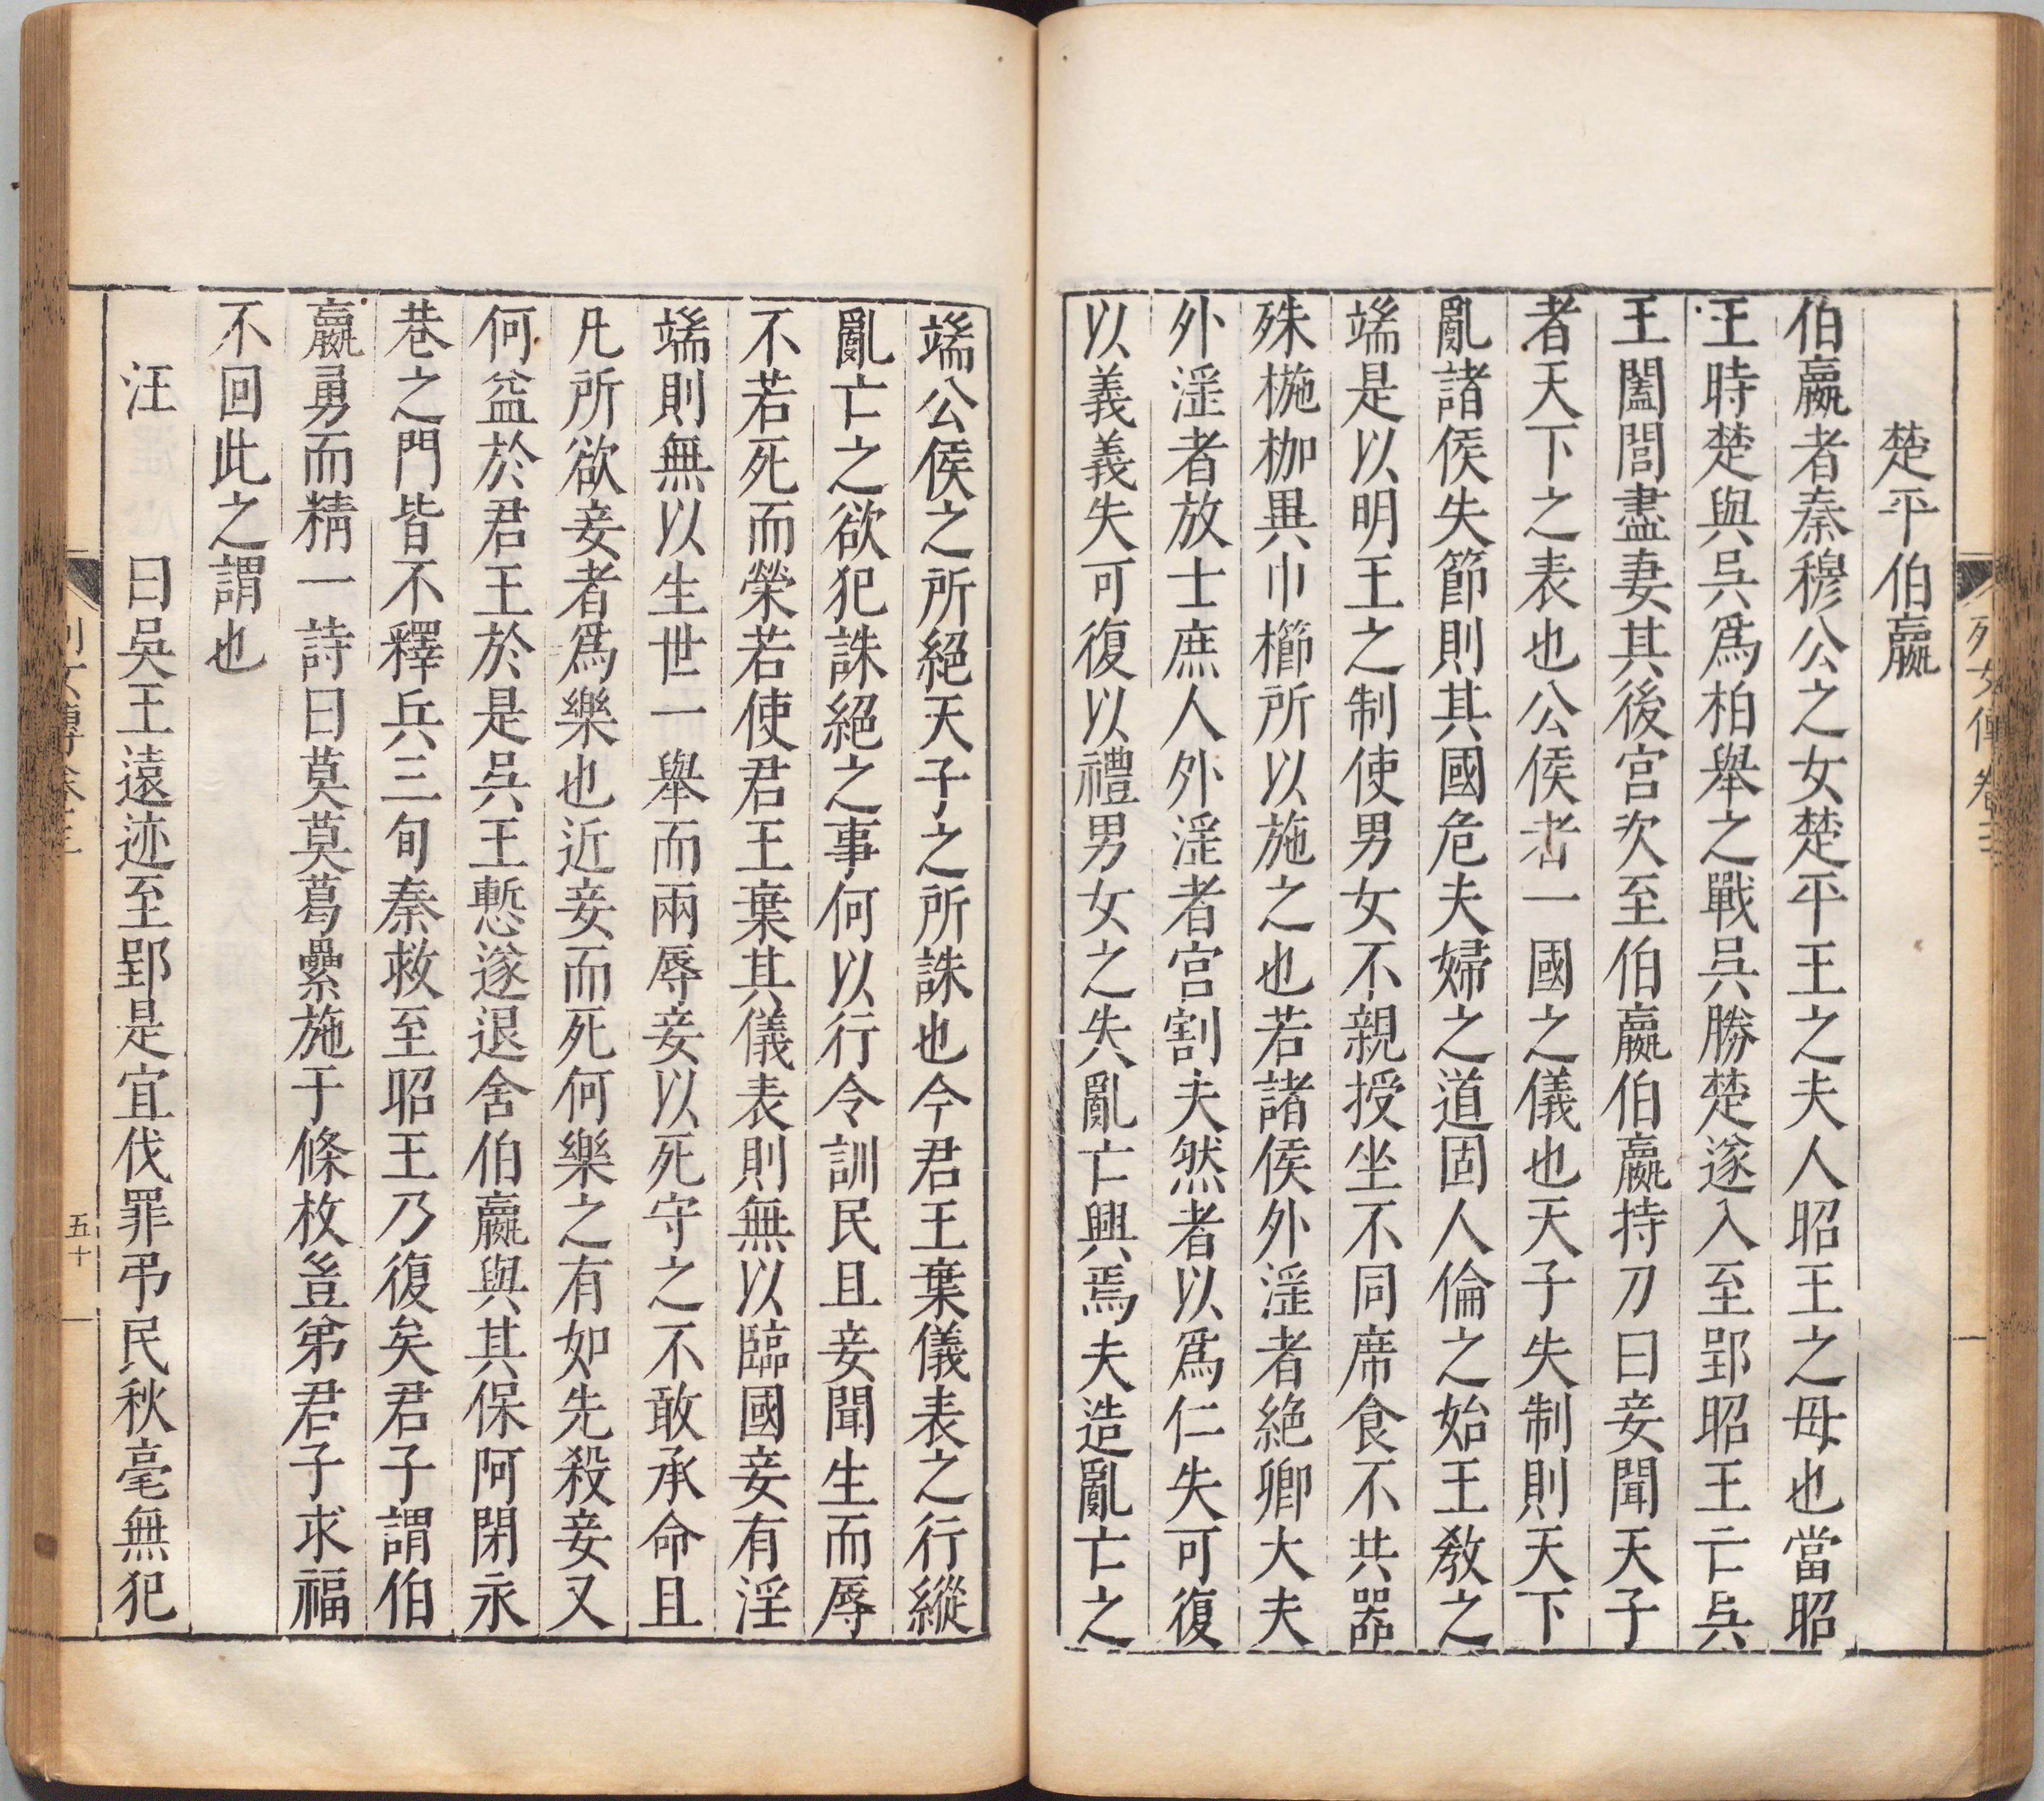 列女傳卷三
楚平伯嬴
伯嬴者秦穆公之女楚平王之夫人昭王之母也當昭
王時楚與吳爲柏舉之戰吳勝楚遂入至郢昭王亡吳
王闔閭盡妻其後宮次至伯嬴伯嬴持刀曰妾聞天子
者天下之表也公侯者一國之儀也天子失制則天下
亂諸侯失節則其國危夫婦之道固人倫之始王敎之
端是以明王之制使男女不親授坐不同席食不共器
殊椸枷異巾櫛所以施之也若諸侯外淫者絶卿大夫
外淫者放士庶人外淫者宮割夫然者以爲仁失可復
以義義失可復以禮男女之失亂亡興焉夫造亂亡之
端公侯之所絕天子之所誅也今君王棄儀表之行縱
亂亡之欲犯誅絕之事何以行令訓民且妾聞生而辱
不若死而榮若使君王棄其儀表則無以臨國妾有淫
端則無以生世一舉而兩辱妾以死守之不敢承命且
凡所欲妾者爲樂也近妾而死何樂之有如先殺妾又
何益於君王於是吳王慙遂退舍伯嬴與其保阿閉永
巷之門皆不釋兵三旬秦救至昭王乃復矣君子謂伯
嬴勇而精一詩曰莫莫葛纍施于條枚豈弟君子求福
不回此之謂也
汪　曰吳王遠迹至郢是宜伐罪弔民秋毫無犯
列女傳卷三
五十